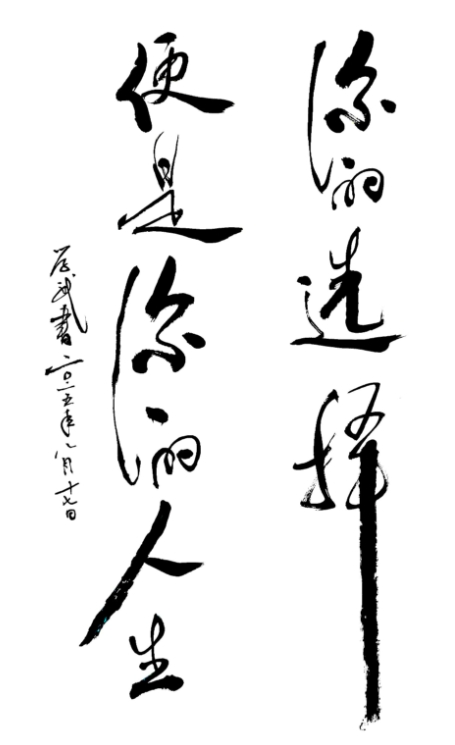 你的选择
便是你的人生
辰武书二〇二五年八月十七日